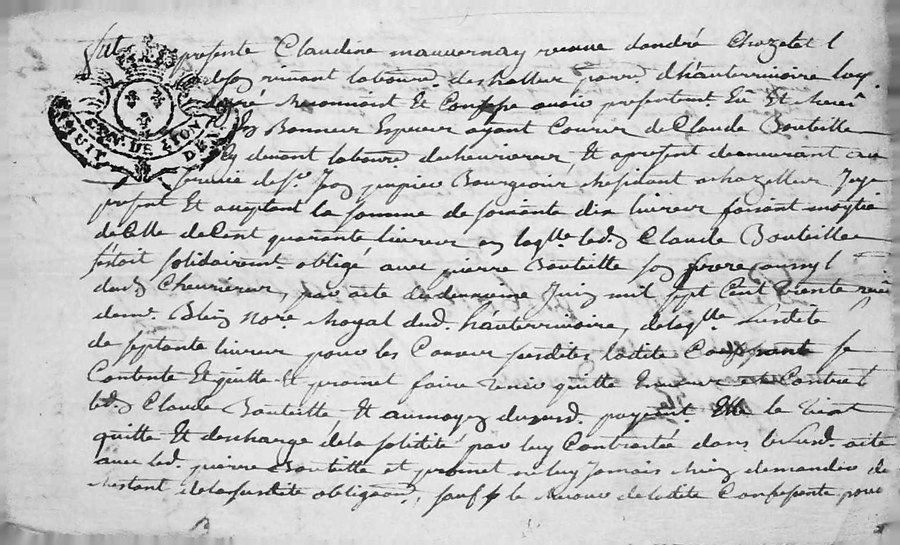 fut presente Claudine mauvernay veuve dandré Chazetet
vivant laboure. des halles parr. dhauterrivoire laq.
Reconnoit Et Confesse avoir presentemt. Eu Et Receu
en Bonnes Especes ayant Cours de Claude Bouteille
devant laboure. de chevrieres, Et apresent demeurant au
de sr. Bourgeois Residant a hazelles Icy
present Et acceptant la somme de soixante dix livres faisant moytié
de Celle de Cent quarante livres en laqlle. led. Claude Bouteille
sestoit solidairemt. obligé avec pierre Bouteille son frere
dud. Chevrieres, par acte du Juin mil sept Cent trente
devm. Blein nore. Royal dud. hauterrivoire, de laqlle. susdite
de septante livres pour les Causes susdites ladite Confessante se
Contente Et quitte Et promet faire tenir quitte Envers Et Contre
led. Claude Bouteille Et aumoyen dususd. payemt. Elle le tient
quitte Et descharge de la solidité par luy Contractée dans le susd. acte
avec led. pierre Bouteille et promet ne luy Jamais Rien demander de
Restant de la susdite obligaon., sauf a ladite Confessante pour
GEN. DE LION
HUIT DEN.